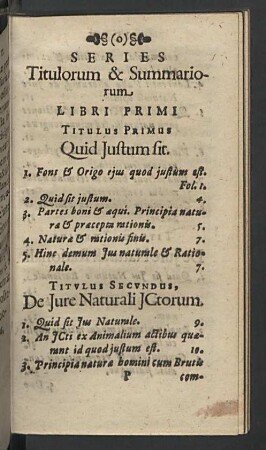 (0)
SERIES
Titulorum & Summario-
rum
LIBRI PRIMI
TITULUS PRIMUS
Quid Justum sit.
1. Fons & Origo ejus quod justum est.
Fol. 1.
2. Quid sit justum. 4.
3. Partes boni & æqui. Principia natu-
ræ & præcepta rationis. 5.
4. Naturæ & rationis finis. 7.
5. Hinc demum Jus naturale & Ratio-
nale. 7.
TITVLUS SECVNDUS,
De Jure Naturali JCtorum.
1. Quid sit Jus Naturale. 9.
2. An JCti ex Animalium actibus quæ-
runt id quod justum est. 10.
3. Principia naturæ homini cum Brutis
P com-